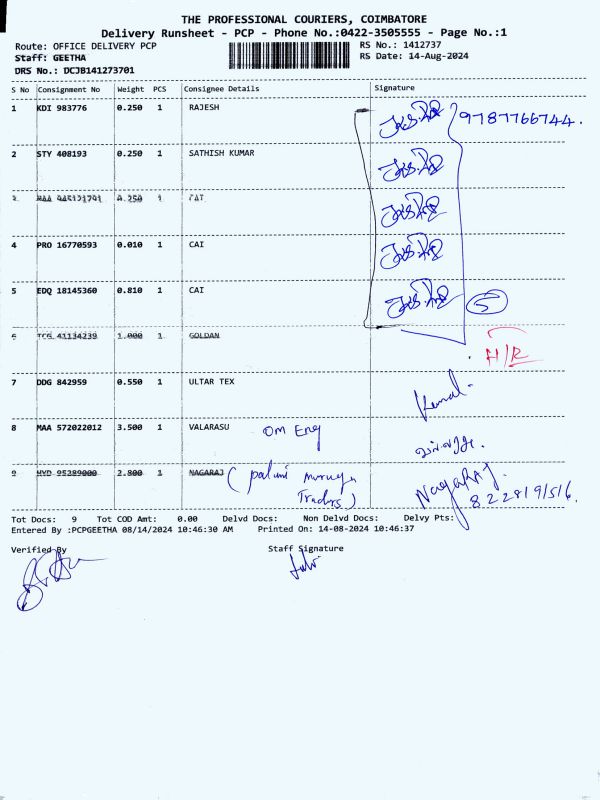 THE PROFESSIONAL COURIERS, COIMBATORE
Delivery Runsheet - PCP - Phone No.:0422-3505555 - Page No.:1
Route: OFFICE DELIVERY PCP RS No.: 1412737
Staff: GEETHA RS Date: 14-Aug-2024
DRS No.: DCJB141273701
S No Consignment No Weight PCS Consignee Details Signature
1 KDI 983776 0.250 1 RAJESH 9787766744.
2 STY 408193 0.250 1 SATHISH KUMAR
3 0.250 1
4 PRO 16770593 0.010 1 CAI
5 EDQ 18145360 0.810 1 CAI 5
6 TCG 41134239 1.000 1 GOLDAN H/R
7 DDG 842959 0.550 1 ULTAR TEX Kamal
8 MAA 572022012 3.500 1 VALARASU Om Eng
9 HYD 95289000 2.800 1 NAGARAJ (palani muruga Traders) NagaRAJ.
Tot Docs: 9 Tot COD Amt: 0.00 Delvd Docs: Non Delvd Docs: Delvy Pts:
Entered By :PCPGEETHA 08/14/2024 10:46:30 AM Printed On: 14-08-2024 10:46:37
Verified By Staff Signature